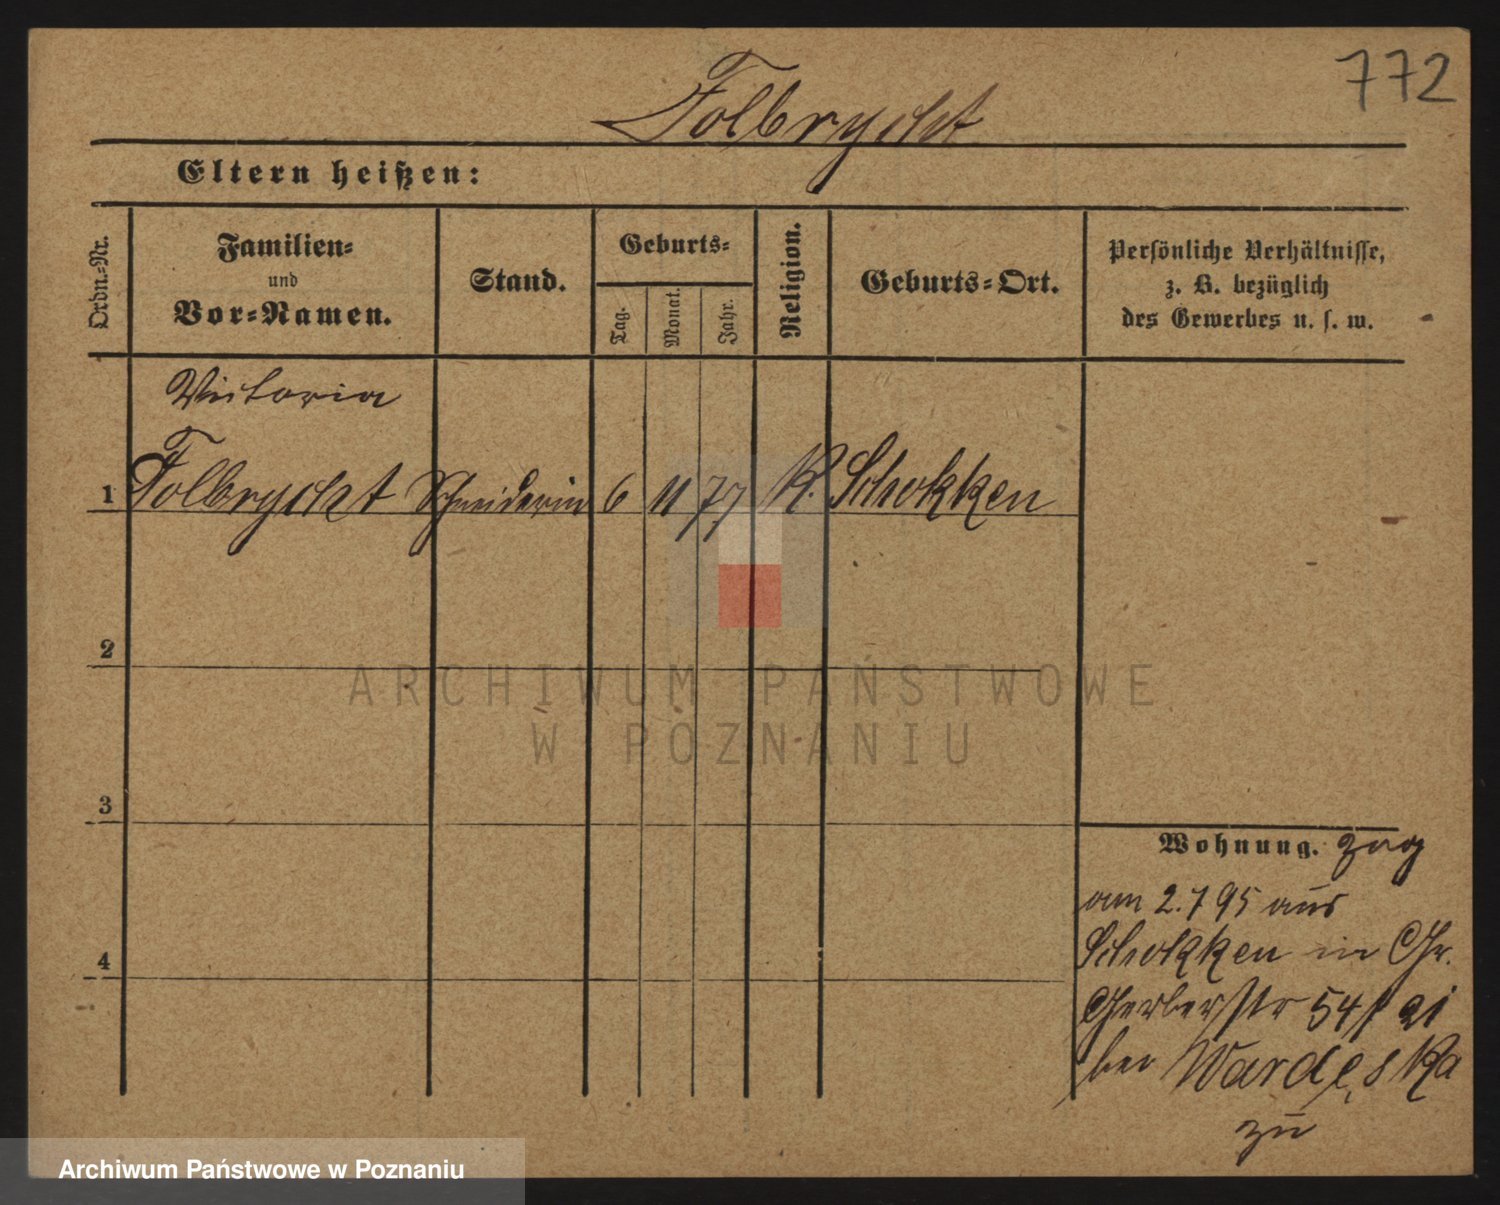 772
Folbrycht
Eltern heißen:
Ordn.-Nr.
Familien-
und
Vor-Namen.
Stand.
Geburts-
Tag.
Monat.
Jahr.
Religion.
Geburts-Ort.
Persönliche Verhältnisse,
z. B. bezüglich
des Gewerbes u. s. w.
Victoria
1 Folbrycht Schneiderin 6 11 77 K. Schokken
2
3
4
Wohnung. zog
am 2.7 95 aus
Schokken in Gr.
Gerberstr 54
bei Wardęska
zu
ARCHIWUM PAŃSTWOWE
W POZNANIU
Archiwum Państwowe w Poznaniu